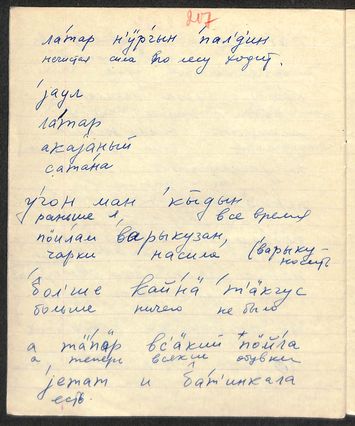 207
ла́тар н'ӱ́рг'ын 'пал'д'ин
нечистая сила по лесу ходит.
'jаул
ла́тар
акаjа́ный
сатана́
у́гон ман 'кыдын
раньше я, все время
пӧйлам 'варыкузан,
чарки носила (варыку-
носить
бо́л'ше кай'нӓ 'т'ӓкгус
больше ничего не было
а тӓпӓр вс'ӓкий пӧйла
а теперь всякий обувки
jетат и ба́т'инкала
есть.